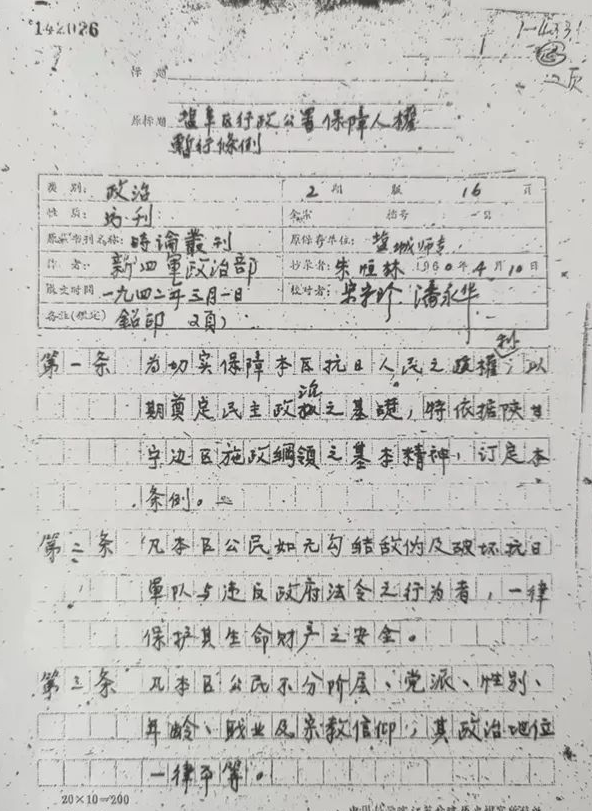 142026
1-1433
2页
标 题
原标题 盐阜区行政公署保障人權
暫行條例
类 别: 政治 2 期 版 16 页
性 质: 为刊 全宗 档号
原书刊名称: 時論叢刊 原保存单位: 盐城师专
作 者: 新四軍政治部 抄录者: 朱恒林 1960年4月10日
成文时间 一九四二年三月一日 校对者: 潘永华
备注(鉴定) 鉛印 2頁)
第一条 为切实保障本区抗日人民之政權,以
期奠定民主政治之基礎,特依据陕甘
宁边区施政綱領之基本精神,订定本
条例。
第二条 凡本区公民如无勾结敌伪及破坏抗日
軍队与违反政府法令之行为者,一律
保护其生命财产之安全。
第三条 凡本区公民不分阶层、党派、性别、
年龄、职业及宗教信仰,其政治地位
一律平等。
20×10=200